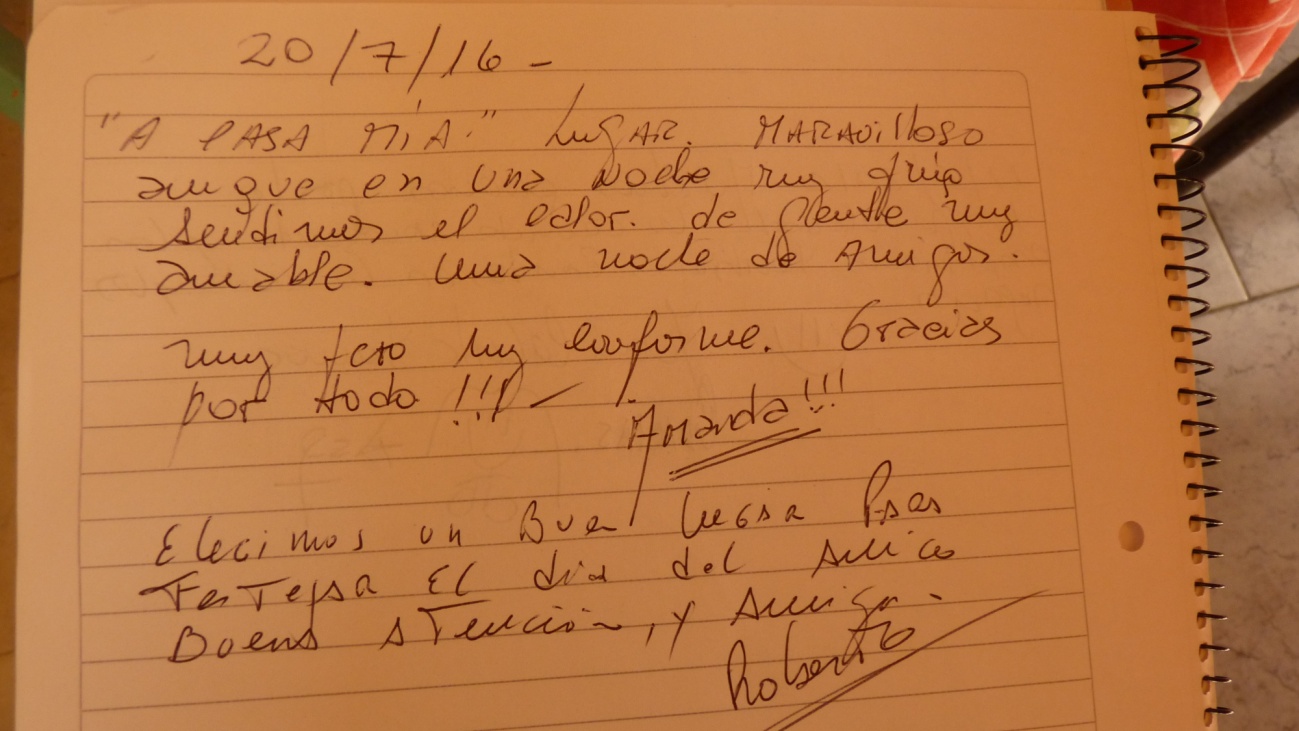 20/7/16 -
"A CASA MÍA." LugAR. MARAVillOSO
aunque en una Noche muy fría
sentimos el calor. de gente muy
amable. una noche de Amigos.
muy rico muy conforme. Gracias
por todo !!! -
Amanda!!!
Elegimos un Buen Lugar Para
FesTejar El dia del Amigo
Buena ATención, y Amiga.
Roberto